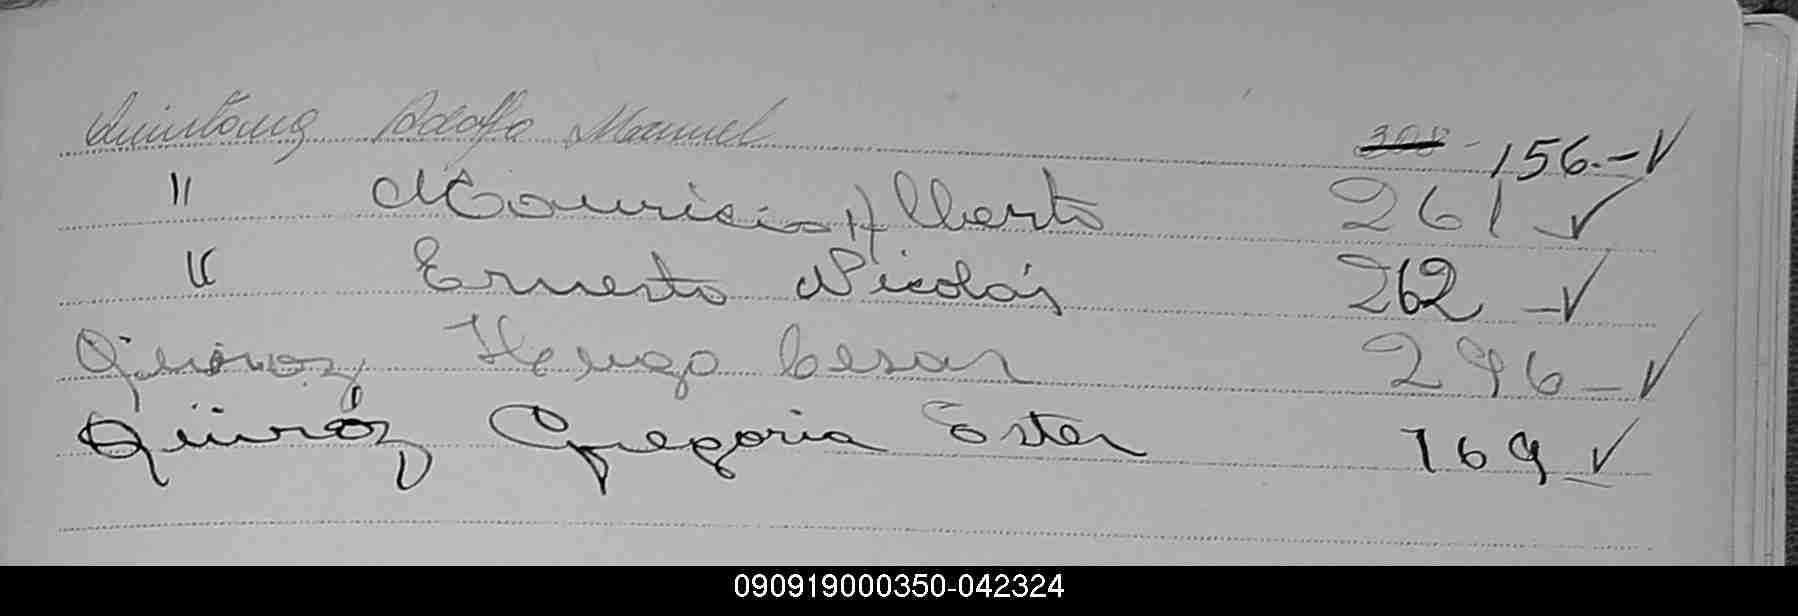 Quintana Adolfo Manuel 308 - 156.- ✓
" Mauricio Alberto 261 ✓
" Ernesto Nicolás 262 - ✓
Quiroz Hugo Cesar 296 - ✓
Quiróz Gregoria Ester 169 ✓
090919000350-042324